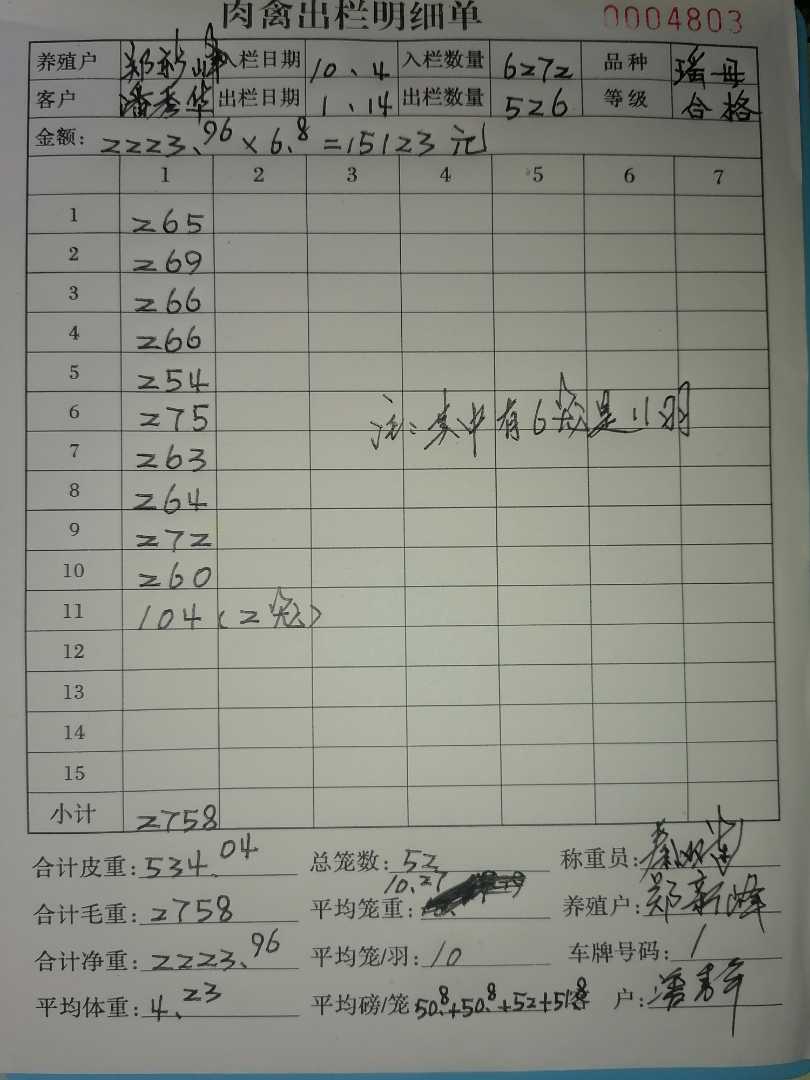 肉禽出栏明细单 0004803
养殖户 郑新峰 入栏日期 10、4 入栏数量 6272 品种 瑶母
客户 潘秀华 出栏日期 1、14 出栏数量 526 等级 合格
金额: 2223.96 × 6.8 = 15123元
1 2 3 4 5 6 7
1 265
2 269
3 266
4 266
5 254
6 275 注: 其中有6笼是11羽
7 263
8 264
9 272
10 260
11 104 (2笼)
12
13
14
15
小计 2758
合计皮重: 534.04 总笼数: 52 称重员:
合计毛重: 2758 平均笼重: 10.27 养殖户: 郑新峰
合计净重: 2223.96 平均笼/羽: 10 车牌号码: 1
平均体重: 4.23 平均磅/笼 50.8+50.8+52+51.8 客户: